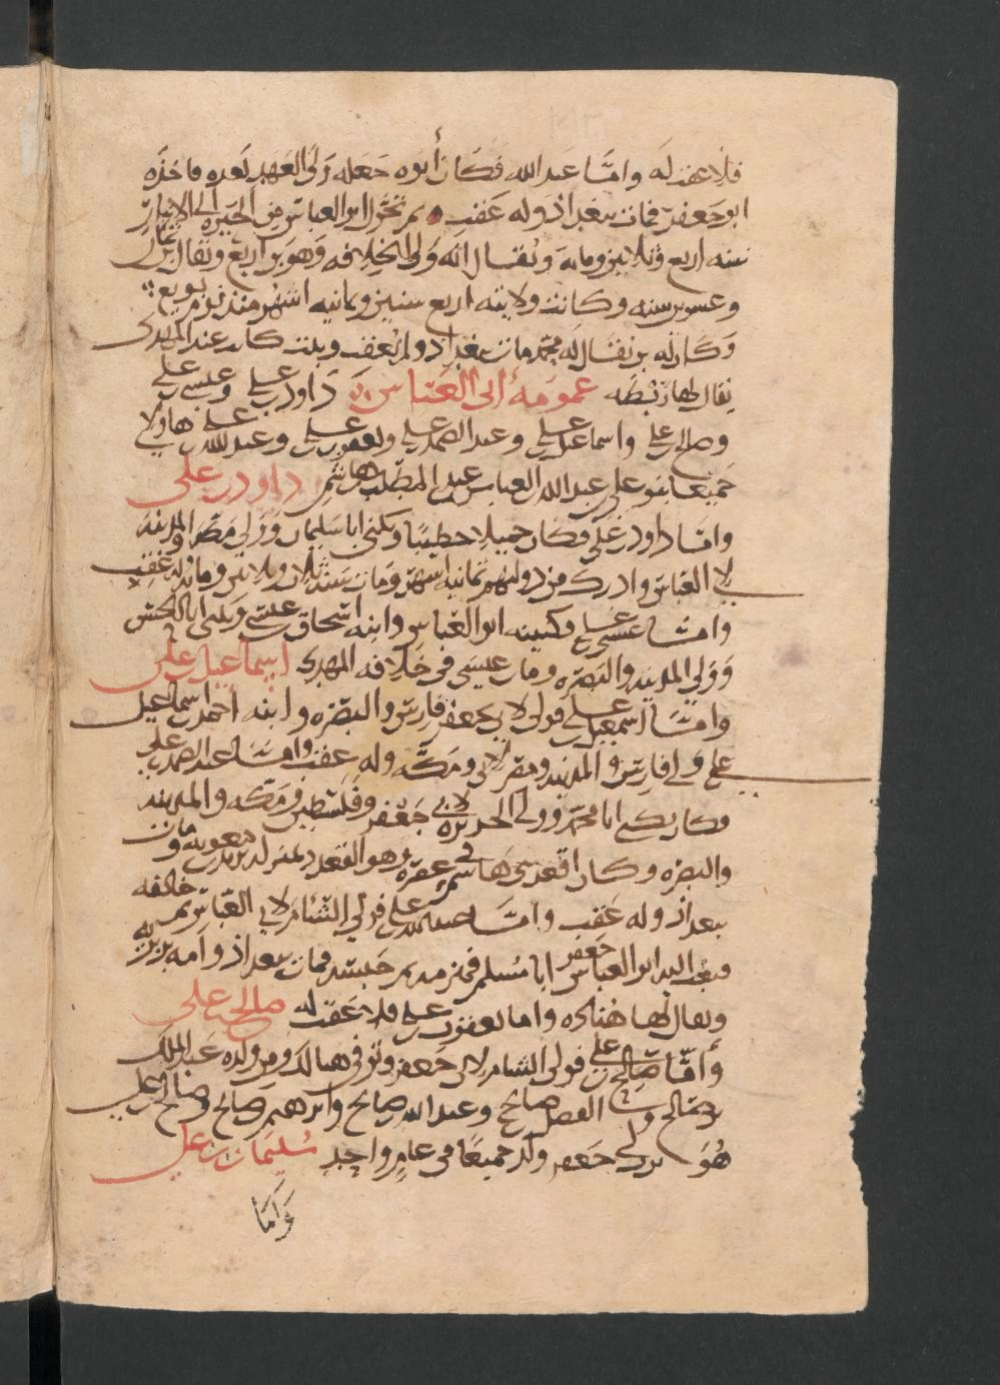 فلا عقب له واما عبد الله فكان أبوه جعله ولي العهد بعده فاخذه
ابو جعفر فمات ببغداد وله عقب ثم تحول ابو العباس من الحيرة الى الانبار
سنه اربع وثلاثين ومايه ويقال انه ولى الخلافه وهو بن اربع ويقال بن ثمان
وعشرين سنه وكانت ولايته اربع سنين وثمانيه اشهر منذ يوم بويع
وكان له بن يقال له محمد مات ببغداد ولم يعقب وبنت كانت عند المهدي
يقال لها ريطه عمومة أبي العباس داود بن علي وعيسى بن علي
وصالح بن علي واسماعيل بن علي وعبد الصمد بن علي ويعقوب بن علي وعبد الله بن علي هاولاي
جميعا بنو علي بن عبد الله بن العباس بن عبد المطلب بن هاشم داود بن علي
واما داود بن علي فكان جميلا خطيبا ويكنى ابا سليمان وولي مكة والمدينة
لابي العباس وادرك من دولتهم ثمانية اشهر ومات سنه ثلاث وثلاثين ومايه وله عقب
واما عيسى بن علي فكنيته ابو العباس وابنه اسحاق بن عيسى ويكنى ابا الحسن
وولي المدينه والبصره ومات عيسى في خلافه المهدي اسماعيل بن علي
واما اسمعيل بن علي فولى لابي جعفر فارس والبصره وابنه احمد بن اسماعيل
بن علي ولي فارس والمدينه ومصر ومكه وله عقب واما عبد الصمد بن علي
فكان يكنى ابا محمد وولي الجزيرة لابي جعفر وفلسطين ومكه والمدينه
والبصره وكان اقعد بني هاشم في عصره وهو القعدد بمنزله يزيد بن معويه ومات
ببغداد وله عقب واما عبد الله بن علي فولي الشام لابي العباس ثم خالفه
فبعث اليه ابو جعفر ابا مسلم فهزمه ثم حبسه فمات ببغداد وامه بربريه
ويقال لها هناده واما يعقوب بن علي فلا عقب له صالح بن علي
وأما صالح بن علي فولى الشام لابي جعفر وتوفي هنالك ومن ولده عبد الملك
بن صالح والفضل بن صالح وعبد الله بن صالح وابرهيم بن صالح وصالح بن علي
هو جعفر ولد جميعا في عام واحد سليمان بن علي
وأما